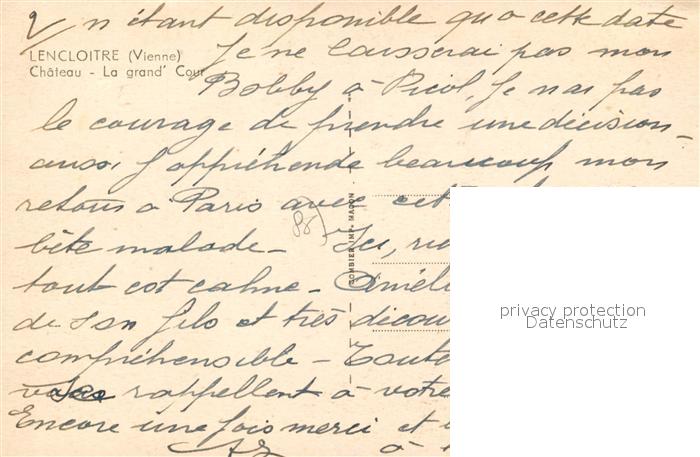 2/ n'étant disponible qu'à cette date
LENCLOITRE (Vienne)
Château - La grand' Cour
Je ne laisserai pas mon
Bobby à Picol, je n'ai pas
le courage de prendre une décision -
aussi j'appréhende beaucoup mon
retour à Paris avec cette
bête malade - Ici,
tout est calme -
de son fils et très
compréhensible -
se rappellent à votre
Encore une fois merci et
à
COMBIER IMP. MACON
privacy protection
Datenschutz